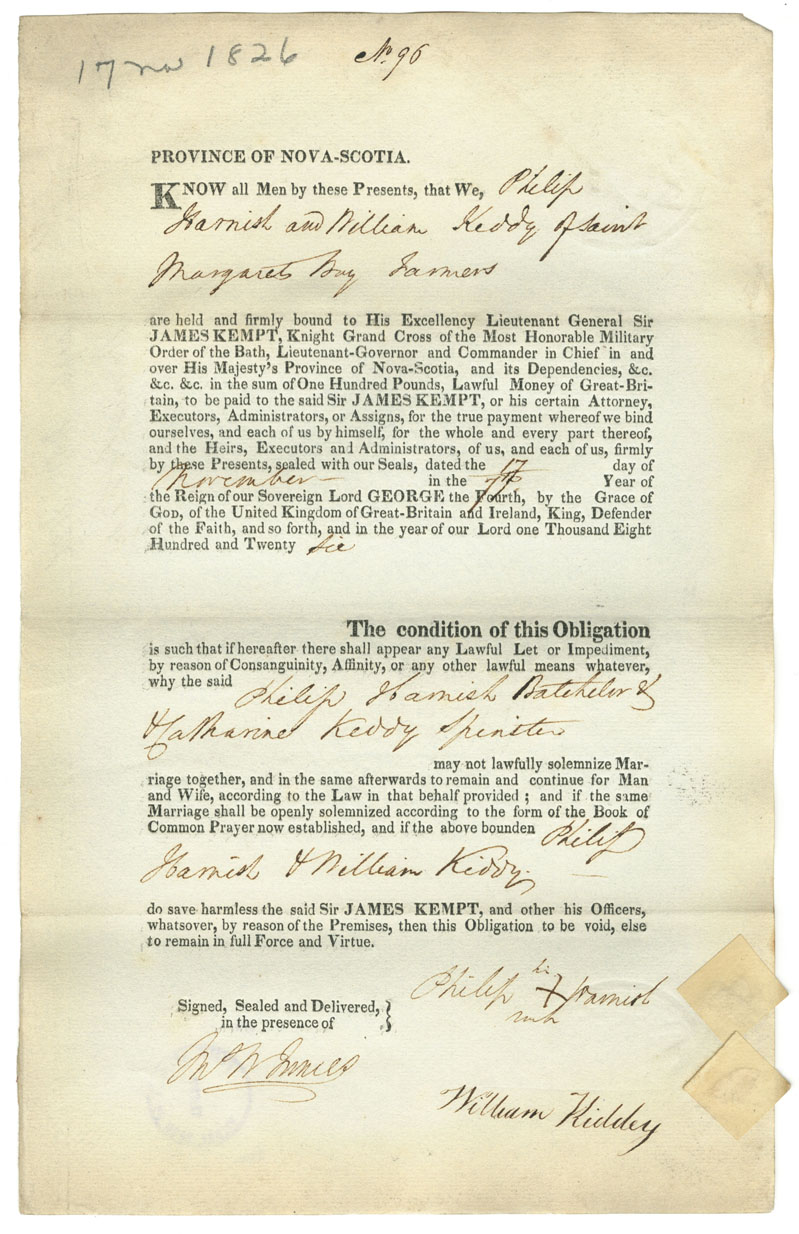 17 Nov 1826
No. 96
PROVINCE OF NOVA-SCOTIA.
KNOW all Men by these Presents, that We, Philip
Harnish and William Keddy of Saint
Margarets Bay Farmers
are held and firmly bound to His Excellency Lieutenant General Sir
JAMES KEMPT, Knight Grand Cross of the Most Honorable Military
Order of the Bath, Lieutenant-Governor and Commander in Chief in and
over His Majesty's Province of Nova-Scotia, and its Dependencies, &c.
&c. &c. in the sum of One Hundred Pounds, Lawful Money of Great-Bri-
tain, to be paid to the said Sir JAMES KEMPT, or his certain Attorney,
Executors, Administrators, or Assigns, for the true payment whereof we bind
ourselves, and each of us by himself, for the whole and every part thereof,
and the Heirs, Executors and Administrators, of us, and each of us, firmly
by these Presents, sealed with our Seals, dated the 17 day of
November in the Year of
the Reign of our Sovereign Lord GEORGE the Fourth, by the Grace of
GOD, of the United Kingdom of Great-Britain and Ireland, King, Defender
of the Faith, and so forth, and in the year of our Lord one Thousand Eight
Hundred and Twenty Six
The condition of this Obligation
is such that if hereafter there shall appear any Lawful Let or Impediment,
by reason of Consanguinity, Affinity, or any other lawful means whatever,
why the said Philip Harnish Batchelor &
& Catharine Keddy Spinster
may not lawfully solemnize Mar-
riage together, and in the same afterwards to remain and continue for Man
and Wife, according to the Law in that behalf provided ; and if the same
Marriage shall be openly solemnized according to the form of the Book of
Common Prayer now established, and if the above bounden Philip
Harnish & William Kiddy.
do save harmless the said Sir JAMES KEMPT, and other his Officers,
whatsover, by reason of the Premises, then this Obligation to be void, else
to remain in full Force and Virtue.
his
Philip + Harnish
mark
Signed, Sealed and Delivered, }
in the presence of
William Kiddey